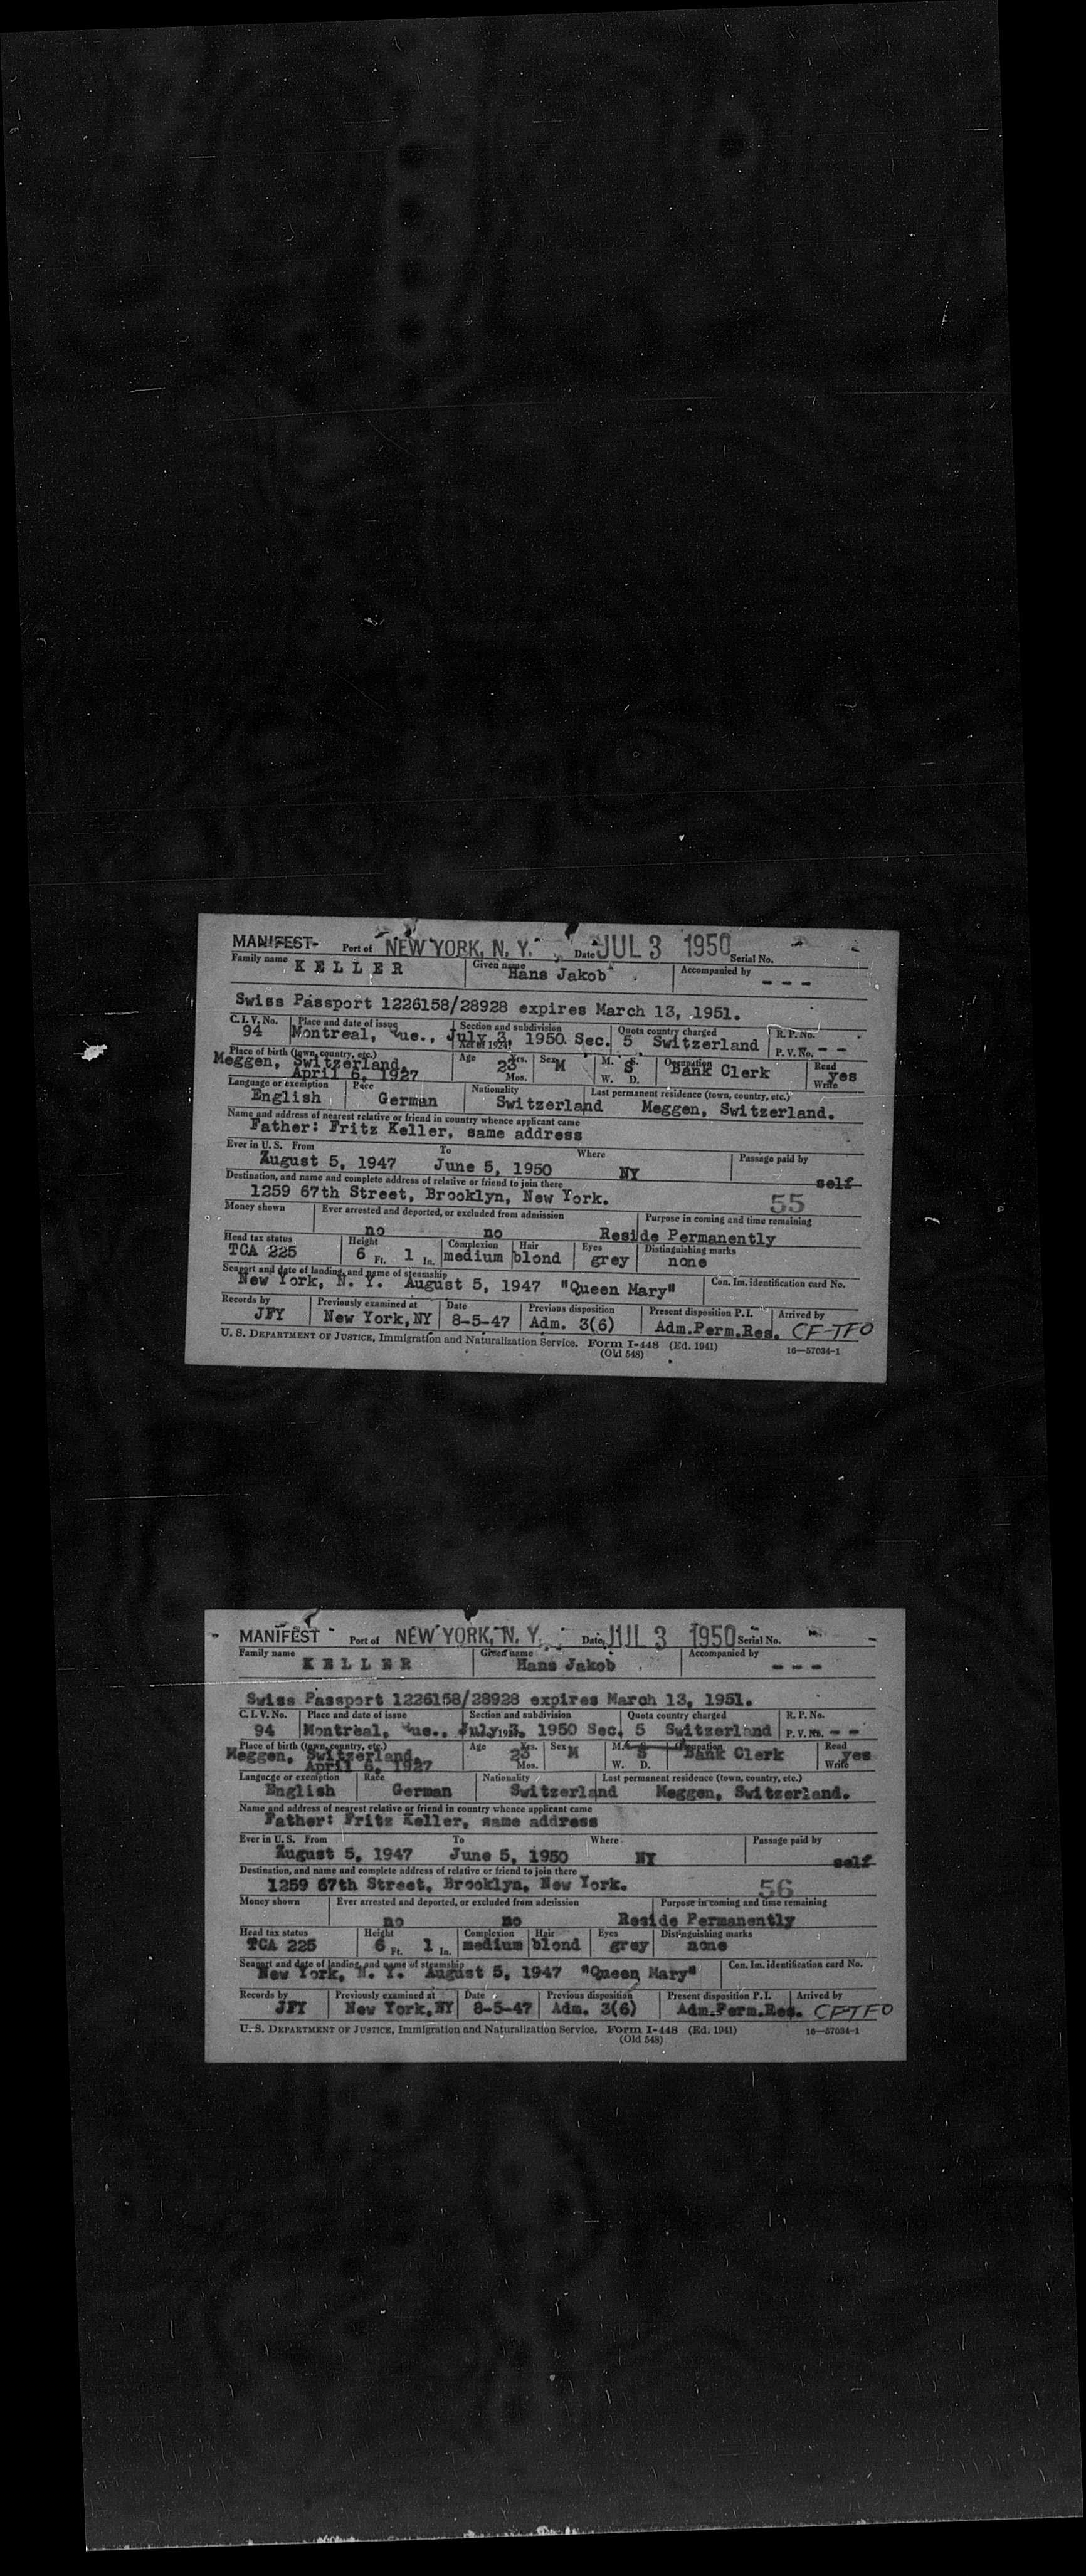 MANIFEST Port of NEW YORK, N. Y. Date JUL 3 1950 Serial No.
Family name KELLER Given name Hans Jakob Accompanied by - - -
Swiss Passport 1226158/28928 expires March 13, 1951.
C. I. V. No. Place and date of issue Section and subdivision Quota country charged R. P. No.
94 Montreal, Que., July 3, 1950 Sec. 5 Switzerland P. V. No. - -
Place of birth (town, country, etc.) Age Yrs. Sex M. S. Occupation Read
Meggen, Switzerland. 23 M S Bank Clerk yes
April 6, 1927 Mos. W. D. Write
Language or exemption Race Nationality Last permanent residence (town, country, etc.)
English German Switzerland Meggen, Switzerland.
Name and address of nearest relative or friend in country whence applicant came
Father: Fritz Keller, same address
Ever in U. S. From To Where Passage paid by
August 5, 1947 June 5, 1950 NY self
Destination, and name and complete address of relative or friend to join there
1259 67th Street, Brooklyn, New York. 55
Money shown Ever arrested and deported, or excluded from admission Purpose in coming and time remaining
no no Reside Permanently
Head tax status Height Complexion Hair Eyes Distinguishing marks
TCA 225 6 Ft. 1 In. medium blond grey none
Seaport and date of landing, and name of steamship Con. Im. identification card No.
New York, N. Y. August 5, 1947 "Queen Mary"
Records by Previously examined at Date Previous disposition Present disposition P. I. Arrived by
JFY New York, NY 8-5-47 Adm. 3(6) Adm.Perm.Res. CF-TFO
U. S. DEPARTMENT OF JUSTICE, Immigration and Naturalization Service. Form I-448 (Ed. 1941) 16—57034-1
(Old 548)
MANIFEST Port of NEW YORK, N. Y. Date JUL 3 1950 Serial No.
Family name KELLER Given name Hans Jakob Accompanied by - - -
Swiss Passport 1226158/28928 expires March 13, 1951.
C. I. V. No. Place and date of issue Section and subdivision Quota country charged R. P. No.
94 Montreal, Que., July 3, 1950 Sec. 5 Switzerland P. V. No. - -
Place of birth (town, country, etc.) Age Yrs. Sex M. S. Occupation Read
Meggen, Switzerland. 23 M S Bank Clerk yes
April 6, 1927 Mos. W. D. Write
Language or exemption Race Nationality Last permanent residence (town, country, etc.)
English German Switzerland Meggen, Switzerland.
Name and address of nearest relative or friend in country whence applicant came
Father: Fritz Keller, same address
Ever in U. S. From To Where Passage paid by
August 5, 1947 June 5, 1950 NY self
Destination, and name and complete address of relative or friend to join there
1259 67th Street, Brooklyn, New York. 56
Money shown Ever arrested and deported, or excluded from admission Purpose in coming and time remaining
no no Reside Permanently
Head tax status Height Complexion Hair Eyes Distinguishing marks
TCA 225 6 Ft. 1 In. medium blond grey none
Seaport and date of landing, and name of steamship Con. Im. identification card No.
New York, N. Y. August 5, 1947 "Queen Mary"
Records by Previously examined at Date Previous disposition Present disposition P. I. Arrived by
JFY New York, NY 8-5-47 Adm. 3(6) Adm.Perm.Res. CF-TFO
U. S. DEPARTMENT OF JUSTICE, Immigration and Naturalization Service. Form I-448 (Ed. 1941) 16—57034-1
(Old 548)